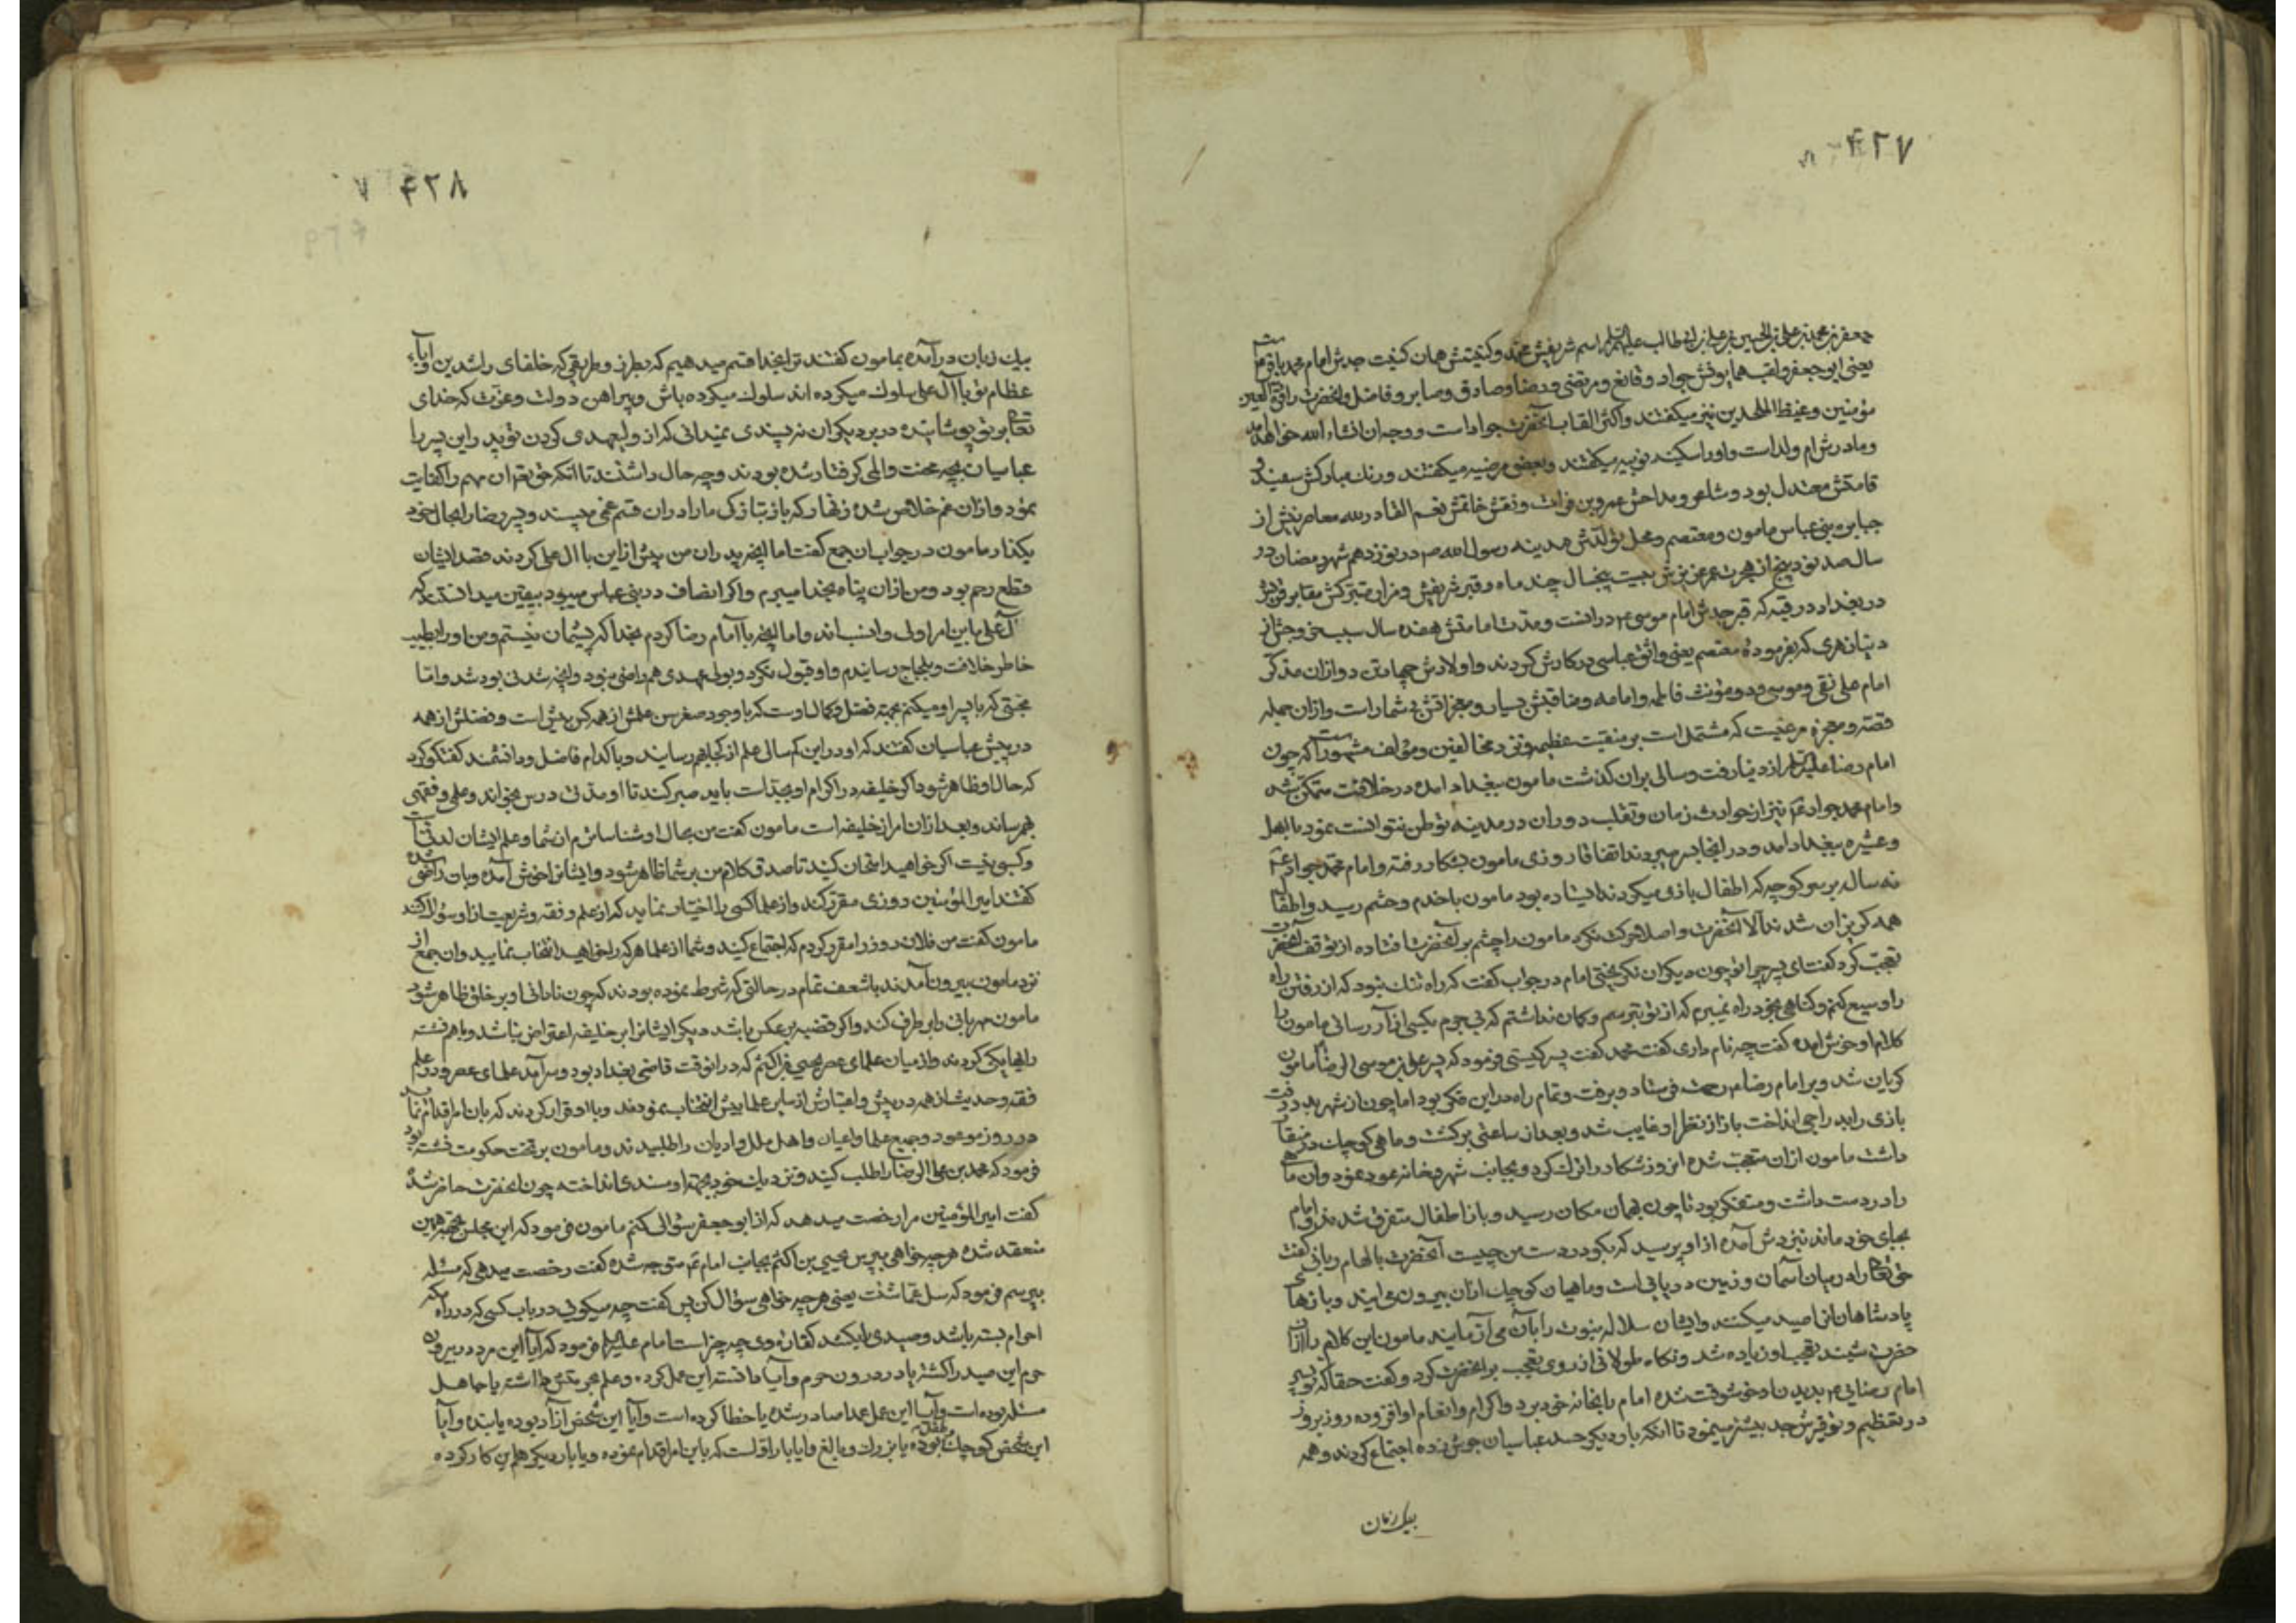 ۴۲۷
جعفر بن محمد بن علی بن الحسین بن علی بن ابی طالب علیهم السلم اسم شریفش محمد و کنیتش همان کنیت جدش امام محمد باقر
یعنی ابو جعفر و لقب همایونش جواد و قانع و مرتضی و رضا و صادق و صابر و فاضل و آنحضرت را قرة العین
مؤمنین و غیظ الملحدین نیز میکفتند و اکثر القاب آنحضرت جواد است و وجه ان انشاء الله خواهد امد
و مادرش ام ولد است و او را سکینه نوبیه میکفتند و بعضی مرضیه میکفتند و رنك مبارکش سفید و
قامتش معتدل بود و شاعر و مداحش عمرو بن فرات و نقش خاتمش نعم القادر لله معاصرینش از
جبابره بنی عباس مامون و معتصم و محل تولدش مدینه رسول الله ص در نوزدهم شهر رمضان در
سال صد نود پنج از هجرت عمر عزیزش بیست پنجسال چند ماه و قبر شریفش و مزار متبرکش مقابر قریش
در بغداد در قبه که قبر جدش امام موسی ع در انست و مدت امامتش هفده سال سببی و جثی از
دنیا زهری که بفرموده معتصم یعنی واثق عباسی در کارش کردند و اولادش چهار تن دو ازان مذکر
امام علی نقی و موسی و دو مؤنث فاطمه و امامه و مناقبش بسیار و معجزاتش بیشمار است و ازان جمله
قصه و معجزه مرغیست که مشتمل است بر منقبت عظیمه و نزد مخالفین و مؤلف مشهور است که چون
امام رضا علیه السلم از دنیا رفت و سالی بران کذشت مامون ببغداد امده در خلافت متمکن شد
و امام محمد جواد نیز از حوادث زمان و تقلب دوران در مدینه توطن نتوانست نمود با اهل
و عشیره ببغداد امد و در انجا بسر میبردند اتفاقا روزی مامون بشکار رفته و امام محمد جواد
نه ساله بر سر کوچه که اطفال بازی میکردند ایستاده بود مامون با خدم و حشم رسید و اطفال
همه کریزان شدند الا آنحضرت و اصلا حرکت نکرد مامون را چشم بر آنحضرت افتاده از توقف آنحضرت
تعجب کرد کفت ای پسر چرا تو چون دیکران نکریختی امام در جواب کفت که راه تنك نبود که از رفتن راه
را وسیع کنم و کناهی بخود راه نمیبرم که از تو بترسم و کمان نداشتم که بی جرم بکسی ازار رسانی مامون را
کلام او خوش امده کفت چه نام داری کفت محمد کفت پسر کیستی فرمود که پسر علی بن موسی الرضا مامون
کریان شد و بر امام رضا رحمت فرستاد و برفت و تمام راه در این فکر بود اما چون از شهر بدر رفت
بازی را بدراجی انداخت باز از نظر او غایب شد و بعد از ساعتی برکشت و ماهی کوچك در منقار
داشت مامون ازان متعجب شده انروز شکار را ترك کرد و بجانب شهر و خانه عود نمود و ان ماهی
را در دست داشت و متفکر بود تا چون بهمان مکان رسید و باز اطفال متفرق شدند و امام
بجای خود ماند نزدش آمده از او پرسید که بکو در دست من چیست آنحضرت بالهام ربانی کفت
حق تعالی را در میان آسمان و زمین دریائی است و ماهیان کوچك ازان بیرون می ایند و بازهای
پادشاهان انرا صید میکنند و ایشان سلاله نبوت را بآن می آزمایند مامون این کلام را ازان
حضرت شنید تعجب او زیاده شد و نکاه طولانی از روی تعجب بر انحضرت کرد و کفت حقا که تو پسر
امام رضائی بدیدن او خوشوقت شده امام را بخانه خود برد و اکرام و انعام او افزوده روز بروز
در تعظیم و توقیرش جد بیشتر مینمود تا انکه بار دیکر حسد عباسیان جوش زده اجتماع کردند و همه
بیك زبان
۴۲۸
بیك زبان در آمده بمامون کفتند ترا بخدا قسم میدهیم که بطرز و طریقی که خلفای راشدین و آبای
عظام تو با آل علی سلوك میکرده اند سلوك میکرده باش و پیراهن دولت و عزت که خدای
تعالی بر تو پوشانیده در بر دیکران نپسندی نمیدانی که از ولیعهدی کردن تو پدر این پسر را
عباسیان بچه محنت و المی کرفتار شده بودند و چه حال داشتند تا انکه حق تعالی ان مهم را کفایت
نمود و ازان غم خلاص شده زنهار که باز بتازکی ما را دران قسم غمی مپسند و پسر رضا را بحال خود
بکذار مامون در جواب ان جمع کفت اما انچه پدران من پیش ازین با ال علی کردند قصد ایشان
قطع رحم بود و من ازان پناه بخدا میبرم و اکر انصاف در بنی عباس میبود بیقین میدانستند که
آل علی باین امر اولی و انسب اند و اما انچه با امام رضا کردم بخدا که پشیمان نیستم و من او را بطیب
خاطر خلافت و بلجاج رسانیدم و او قبول نکرد و بولیعهدی هم راضی نبود و انچه شدنی بود شد و اما
محبتی که با پسر او میکنم بجهة فضل و کمال اوست که با وجود صغر سن علمش از همه کس بیش است و فضلش از همه
در پیش عباسیان کفتند که او در این کم سالی علم از کجا بهم رسانید و با کدام فاضل و دانشمند کفتکو کرد
که حال او ظاهر شود اکر خلیفه در اکرام او بجد است باید صبر کند تا او مدتی درس بخواند و علمی و فقهی
بهم رساند و بعد ازان امر از خلیفه است مامون کفت من بحال او شناساترم از شما و علم ایشان لدنی است
و کسبی نیست اکر خواهید امتحان کنید تا صدق کلام من بر شما ظاهر شود و ایشانرا خوش آمده و بان راضی شده
کفتند امیر المؤمنین روزی مقرر کند و از علما کسی را اختیار نماید که از علم و فقه و شریعت از او سؤال کند
مامون کفت من فلان روز را مقرر کردم که اجتماع کنید و شما از علما هر که را خواهید انتخاب نمایید و ان جمع از
نزد مامون بیرون آمدند با شعف تمام در حالتی که شرط نموده بودند که چون نادانی او بر خلق ظاهر شود
مامون مهربانی را بر طرف کند و اکر قضیه بر عکس باشد دیکر ایشانرا بر خلیفه اعتراض نباشد و باهم نشسته
رایها یکی کردند و از میان علمای عصر یحیی بن اکثم که در انوقت قاضی بغداد بود و سرآمد علمای عصر و در علم
فقه و حدیث از همه در پیش و اعتبارش از سایر علما بیش انتخاب نمودند و با او قرار کردند که بان امر اقدام نماید
در روز موعود و جمیع علما و اعیان و اهل ملل و ادیان را طلبیدند و مامون بر تخت حکومت نشسته بود
فرمود که محمد بن علی الرضا را طلب کنید و نزدیك خود بجهة او مسندی انداخته چون انحضرت حاضر شد
کفت امیر المؤمنین مرا رخصت میدهد که از ابو جعفر سؤالی کنم مامون فرمود که این مجلس بجهة همین
منعقد شده هر چه خواهی بپرس یحیی بن اکثم بجانب امام متوجه شده کفت رخصت میدهی که مسئله
بپرسم فرمود که سل عما شئت یعنی هر چه خواهی سؤال کن پس کفت چه میکوئی در باب کسی که در راه مکه
احرام بسته باشد و صیدی را بکشد کفاره وی چه چیز است امام علیه السلم فرمود که آیا این مرد در بیرون
حرم این صید را کشته یا در درون حرم و آیا دانسته این عمل کرده و علم بحرمتش داشته یا جاهل
مسئله بوده است و آیا این عمل عمدا صادر شده یا خطا کرده است و آیا این شخص آزاد بوده یا بنده و آیا
این شخص کوچك بوده یا بزرك و بالغ و ایا بار اول است که باین امر اقدام نموده و یا بار دیکر هم این کار کرده